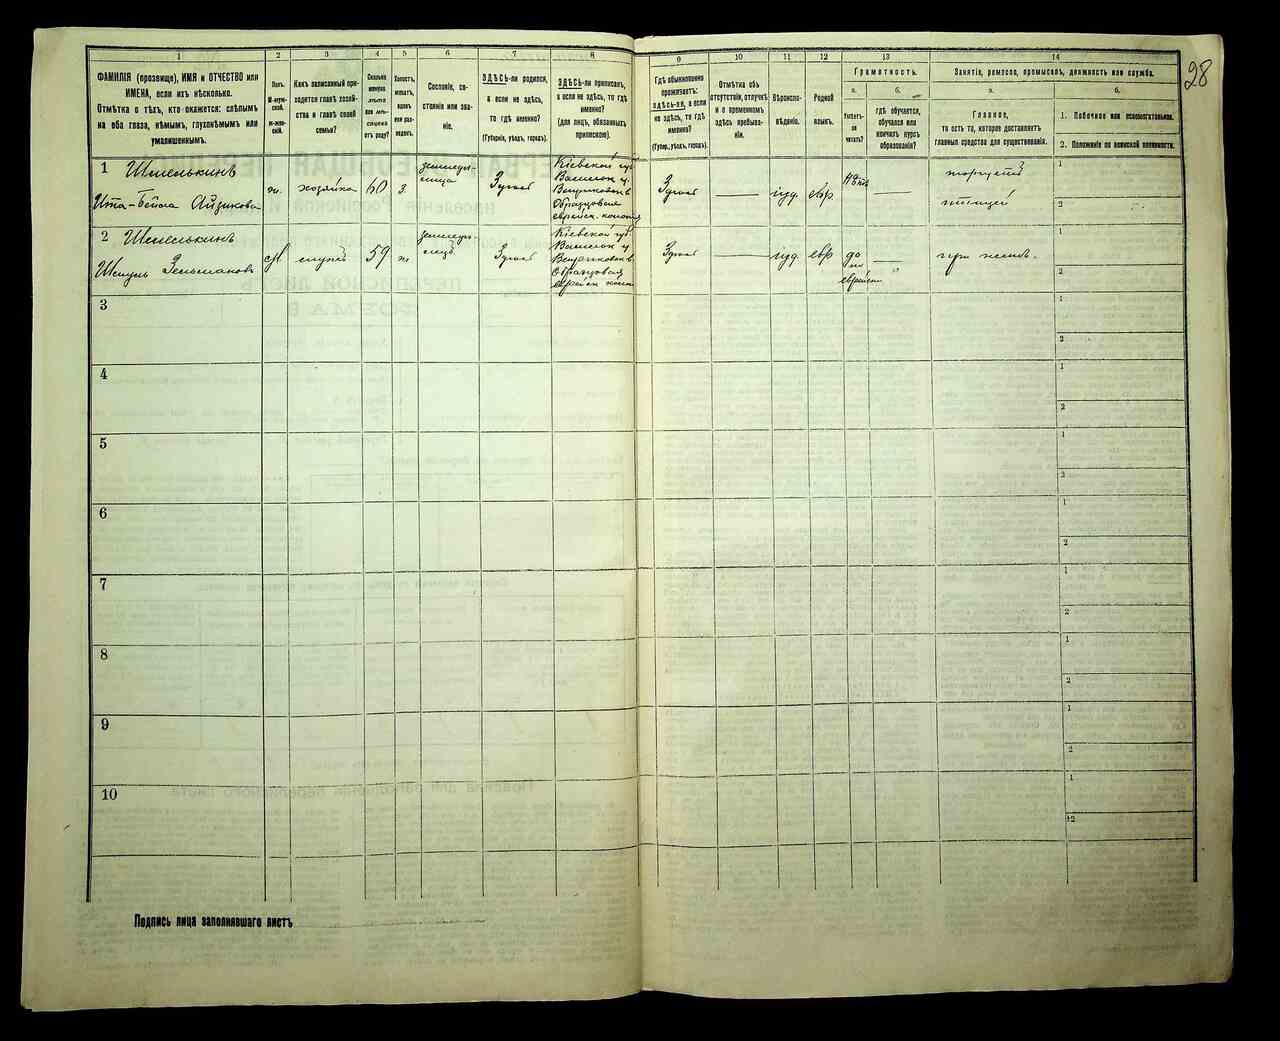 28
1
2
3
4
5
6
7
8
9
10
11
12
13
14
ФАМИЛІЯ (прозвище), ИМЯ и ОТЧЕСТВО или
ИМЕНА, если ихъ нѣсколько.
Отмѣтка о тѣхъ, кто окажется: слѣпымъ
на оба глаза, нѣмымъ, глухонѣмымъ или
умалишеннымъ.
Полъ.
М-муж-
ской.
ж-жен-
скій.
Какъ записанный при-
ходится главѣ хозяй-
ства и главѣ своей
семьи?
Сколько
минуло
лѣтъ
или мѣ-
сяцевъ
отъ роду?
Холостъ,
женатъ,
вдовъ
или раз-
веденъ.
Сословіе, со-
стояніе или зва-
ніе.
ЗДѢСЬ-ли родился,
а если не здѣсь,
то гдѣ именно?
(Губернія, уѣздъ, городъ).
ЗДѢСЬ-ли приписанъ,
а если не здѣсь, то гдѣ
именно?
(для лицъ, обязанныхъ
припискою).
Гдѣ обыкновенно
проживаетъ:
ЗДѢСЬ-ли, а если
не здѣсь, то гдѣ
именно?
(Губер., уѣздъ, городъ).
Отмѣтка объ
отсутствіи, отлучкѣ
и о временномъ
здѣсь пребыва-
ніи.
Вѣроиспо-
вѣданіе.
Родной
языкъ.
Грамотность.
а.
б.
Умѣетъ-
ли
читать?
гдѣ обучается,
обучался или
кончилъ курсъ
образованія?
Занятіе, ремесло, промыселъ, должность или служба.
а.
б.
Главное,
то есть то, которое доставляетъ
главныя средства для существованія.
1. Побочное или вспомогательное.
2. Положеніе по воинской повинности.
1
Шмелькинъ
Ита-Бейла Айзикова
ж.
хозяйка
60
З.
Здѣсь
Кіевской губ
Василк. у.
Образцовая
еврейск. колонія
Здѣсь
іуд.
евр.
нѣтъ
торгуетъ
птицей
1
2
2
Шмелькинъ
Шмуль Зельмановъ
М
мужъ
59
ж
Здѣсь
Кіевской губ
Василк у
Образцовая
Здѣсь
іуд.
евр
до
еврейски
при женѣ.
1
2
3
1
2
4
1
2
5
1
2
6
1
2
7
1
2
8
1
2
9
1
2
10
1
2
Подпись лица заполнявшаго листъ